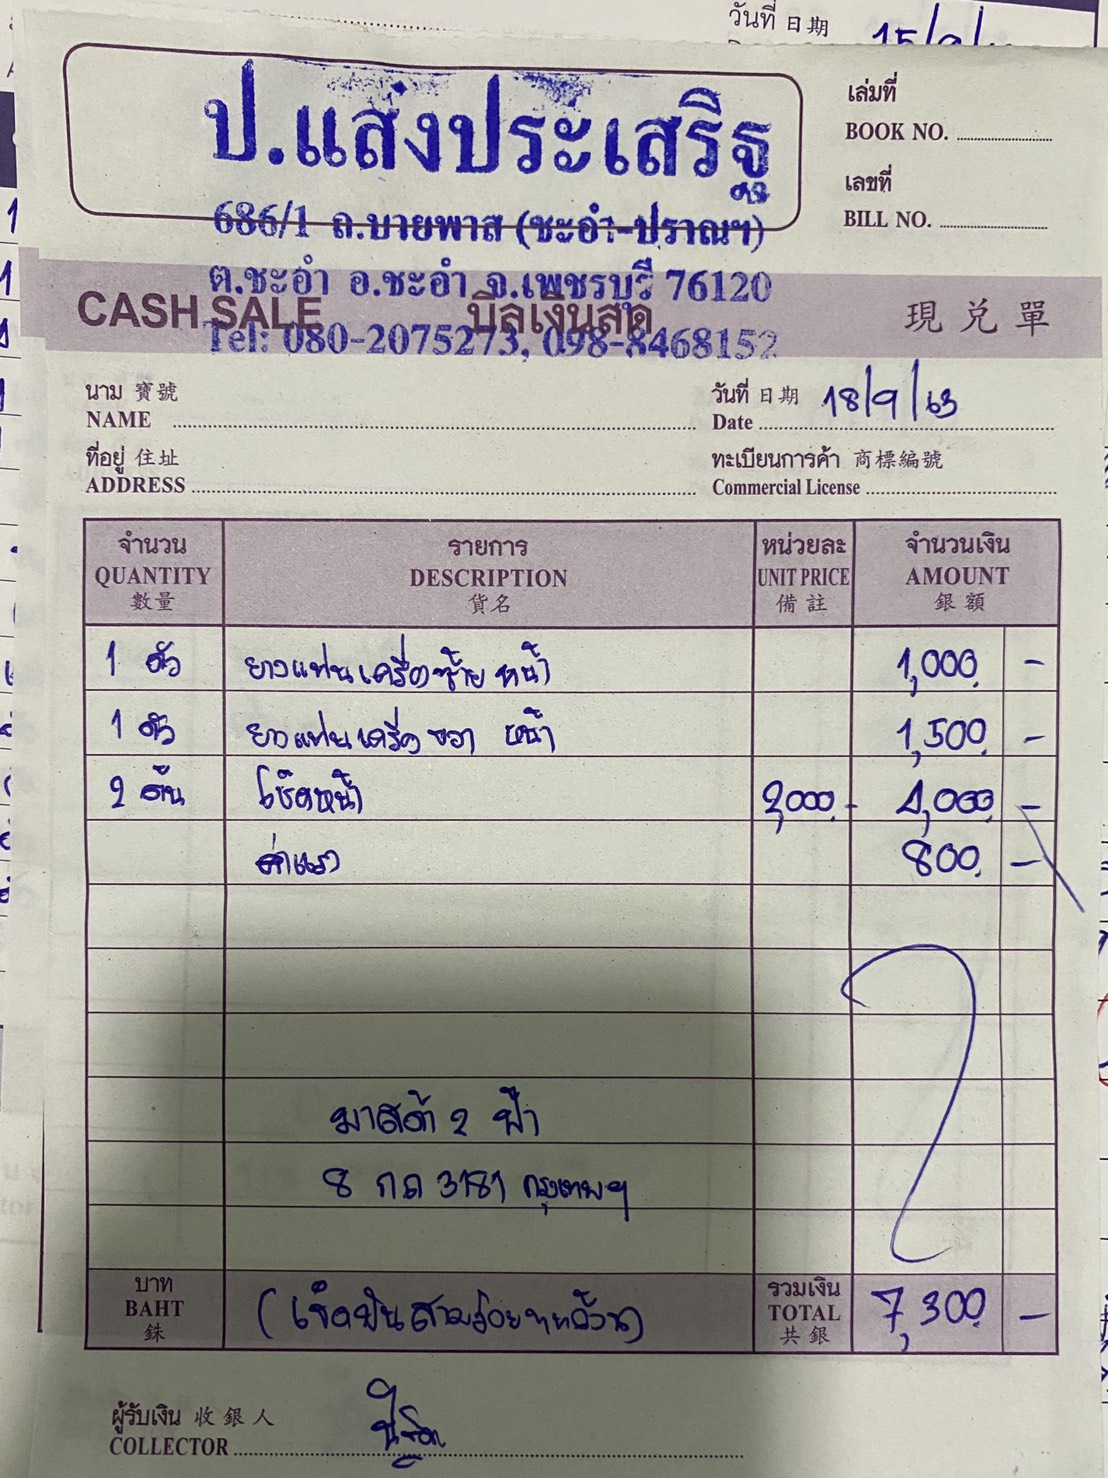 วันที่ 日期 15/9/
ป.แสงประเสริฐ
686/1 ถ.บายพาส (ชะอำ-ปราณฯ)
ต.ชะอำ อ.ชะอำ จ.เพชรบุรี 76120
Tel: 080-2075273, 098-8468152
เล่มที่
BOOK NO.
เลขที่
BILL NO.
CASH SALE บิลเงินสด 現兑單
นาม 寶號
NAME
วันที่ 日期 18/9/63
Date
ที่อยู่ 住址
ADDRESS
ทะเบียนการค้า 商標編號
Commercial License
จำนวน รายการ หน่วยละ จำนวนเงิน
QUANTITY DESCRIPTION UNIT PRICE AMOUNT
數量 貨名 備註 銀額
1 ตัว ยางแท่นเครื่องซ้าย หน้า 1,000 -
1 ตัว ยางแท่นเครื่องขวา หน้า 1,500 -
2 ต้น โช๊คหน้า 2,000 - 4,000 -
ค่าแรง 800 -
มาสด้า 2 ฟ้า
8 กถ 3181 กรุงเทพฯ
บาท รวมเงิน
BAHT (เจ็ดพันสามร้อยบาทถ้วน) TOTAL 7,300 -
銖 共銀
ผู้รับเงิน 收銀人
COLLECTOR